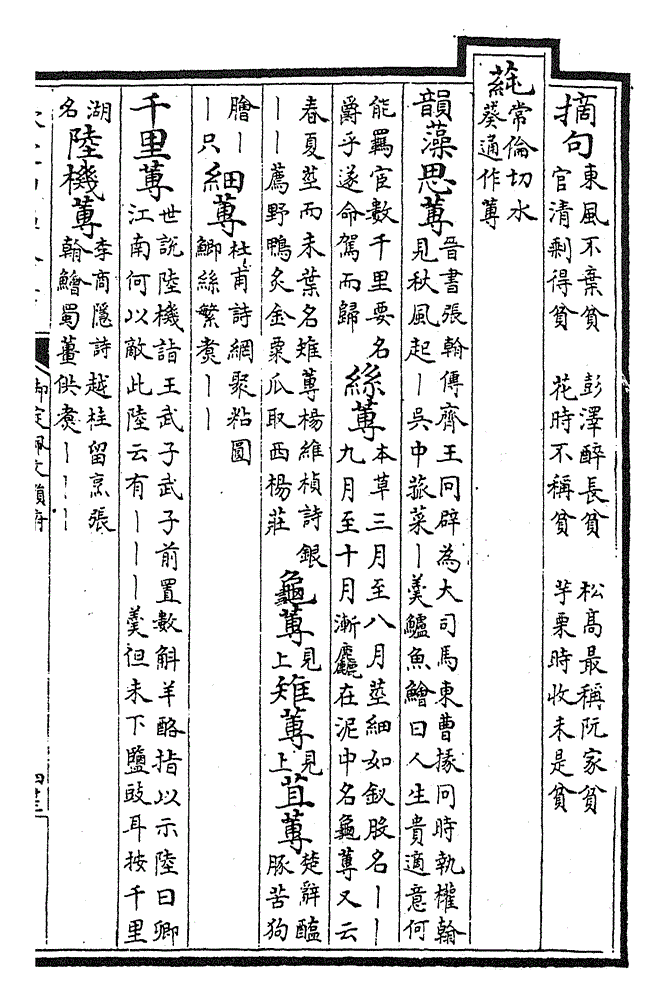 摘句 東風不棄貧 彭澤醉長貧 松高最稱阮家貧
官清剩得貧 花時不稱貧 芋栗時收未是貧
蒓 常倫切水
葵通作蓴
韻藻 思蓴 晉書張翰傳齊王冏辟為大司馬東曹掾冏時執權翰
見秋風起丨吳中菰菜丨羮鱸魚鱠曰人生貴適意何
能羈宦數千里要名
爵乎遂命駕而歸
絲蓴 本草三月至八月莖細如釵股名丨丨
九月至十月漸麤在泥中名龜蓴又云
春夏莖而未葉名雉蓴楊維楨詩銀
丨丨薦野鴨炙金粟瓜取西楊莊
龜蓴 見上 雉蓴 見上 苴蓴 楚辭醢
豚苦狗
膾丨
丨只
細蓴 杜甫詩網聚粘圓
鯽絲繁煮丨丨
千里蓴 世說陸機詣王武子武子前置數斛羊酪指以示陸曰卿
江南何以敵此陸云有丨丨丨羮但未下鹽豉耳按千里
湖
名
陸機蓴 李商隱詩越桂留烹張
翰鱠蜀薑供煮丨丨丨
御定佩文韻府